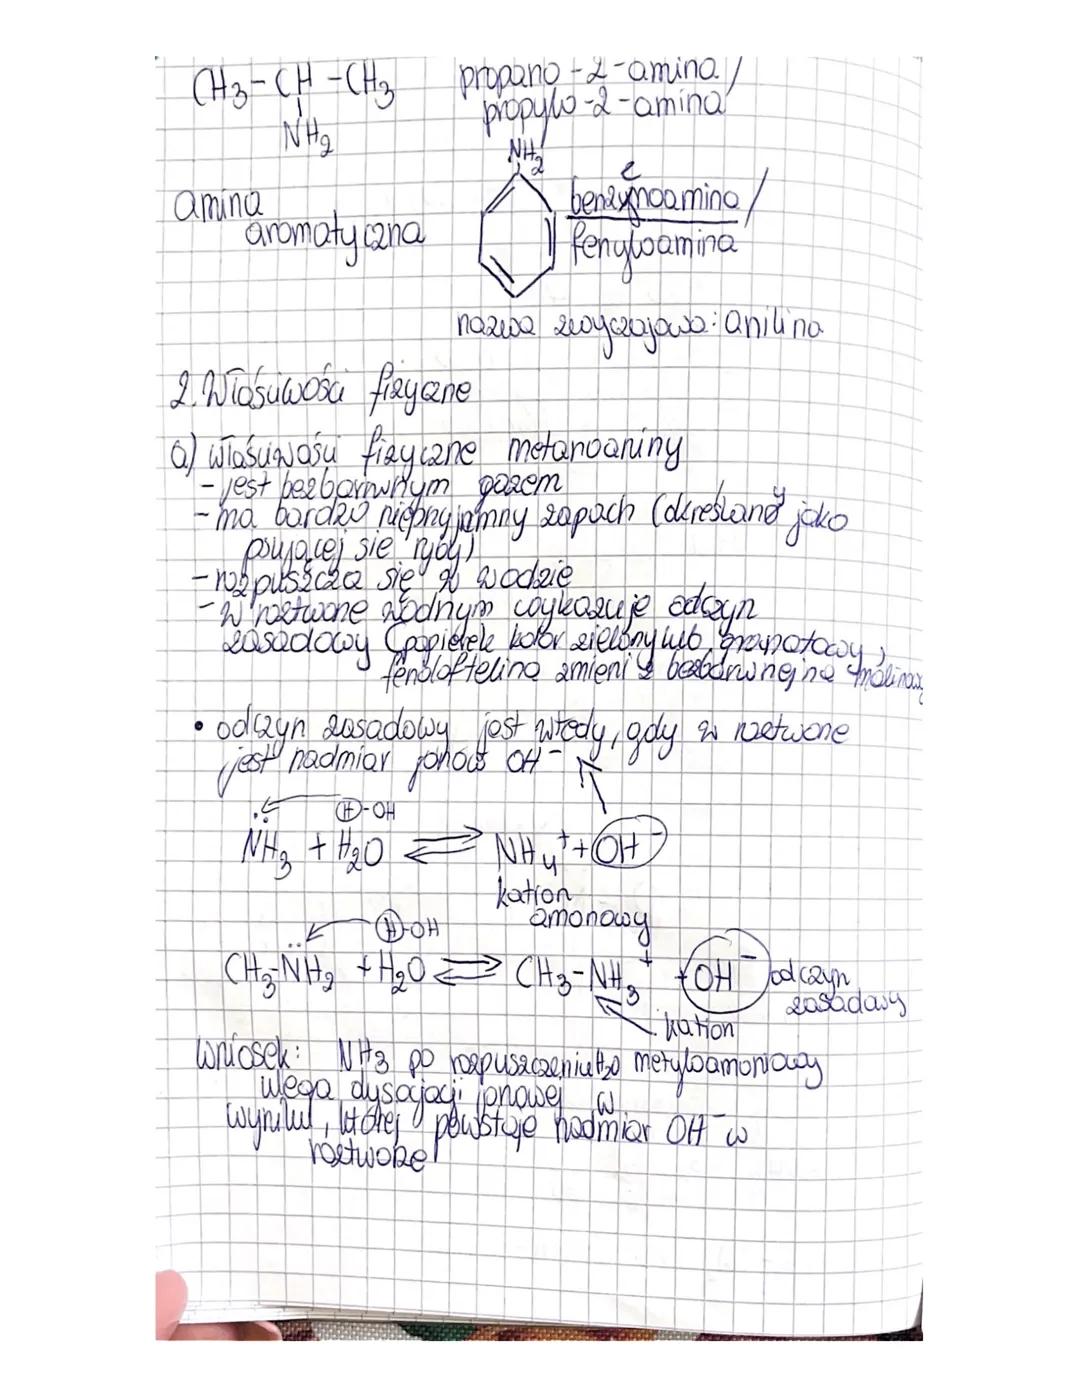 CH3-CH-CH3 propano-2-amina/
NH2 propylo-2-amina
NH2
amina
aromatyczna
benzenoamina/
fenyloamina
nazwa zwyczajowa: anilina
2. Właściwości fizyczne
a) właściwości fizyczne metanoaminy
- jest bezbarwnym gazem
- ma bardzo nieprzyjemny zapach (określany jako
psującej się ryby)
- rozpuszcza się w wodzie
- w roztworze wodnym wykazuje odczyn
zasadowy (papierek kolor zielony lub granatowy,
fenoloftelina zmieni z bezbarwnej na malinową
• odczyn zasadowy jest wtedy, gdy w roztworze
jest nadmiar jonów OH⁻
H-OH
NH3 + H2O ⇌ NH4⁺ + OH⁻
kation
amonowy
H-OH
CH3-NH2 + H2O ⇌ CH3-NH3⁺ + OH⁻ odczyn
zasadowy
kation
Wniosek: NH3 po rozpuszczeniu H2O metyloamoniowy
ulega dysocjacji jonowej w
wyniku, której powstaje nadmiar OH⁻ w
roztworze